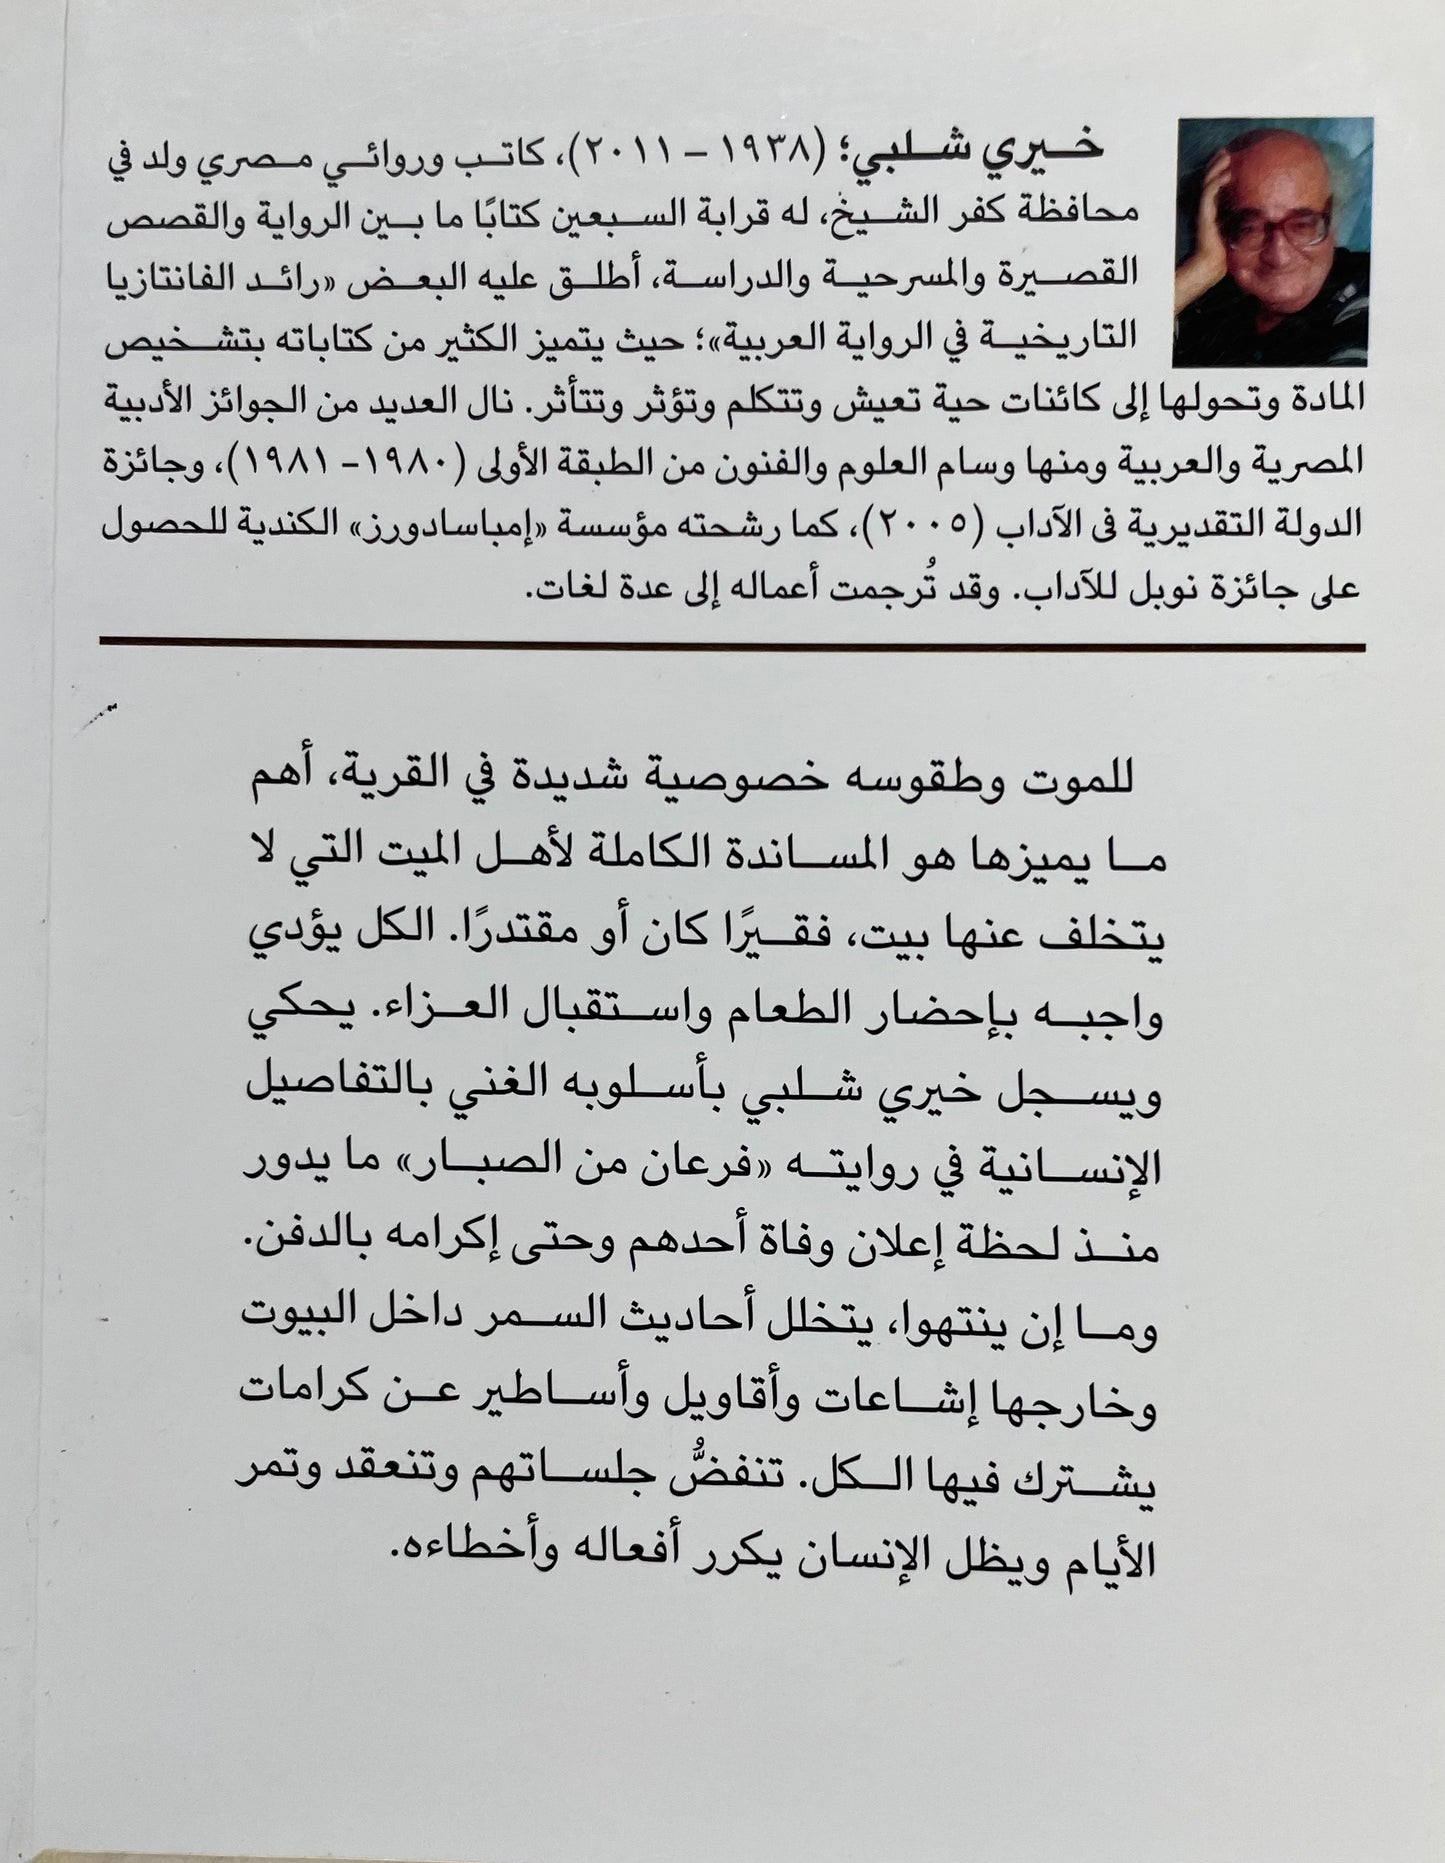 خيري شلبي؛ (١٩٣٨ – ٢٠١١)، كاتب وروائي مصري ولد في
محافظة كفر الشيخ، له قرابة السبعين كتابًا ما بين الرواية والقصص
القصيرة والمسرحية والدراسة، أطلق عليه البعض «رائد الفانتازيا
التاريخية في الرواية العربية»؛ حيث يتميز الكثير من كتاباته بتشخيص
المادة وتحولها إلى كائنات حية تعيش وتتكلم وتؤثر وتتأثر. نال العديد من الجوائز الأدبية
المصرية والعربية ومنها وسام العلوم والفنون من الطبقة الأولى (١٩٨٠– ١٩٨١)، وجائزة
الدولة التقديرية فى الآداب (٢٠٠٥)، كما رشحته مؤسسة «إمباسادورز» الكندية للحصول
على جائزة نوبل للآداب. وقد تُرجمت أعماله إلى عدة لغات.
للموت وطقوسه خصوصية شديدة في القرية، أهم
ما يميزها هو المساندة الكاملة لأهل الميت التي لا
يتخلف عنها بيت، فقيرًا كان أو مقتدرًا. الكل يؤدي
واجبه بإحضار الطعام واستقبال العزاء. يحكي
ويسجل خيري شلبي بأسلوبه الغني بالتفاصيل
الإنسانية في روايته «فرعان من الصبار» ما يدور
منذ لحظة إعلان وفاة أحدهم وحتى إكرامه بالدفن.
وما إن ينتهوا، يتخلل أحاديث السمر داخل البيوت
وخارجها إشاعات وأقاويل وأساطير عن كرامات
يشترك فيها الكل. تنفضُّ جلساتهم وتنعقد وتمر
الأيام ويظل الإنسان يكرر أفعاله وأخطاءه.